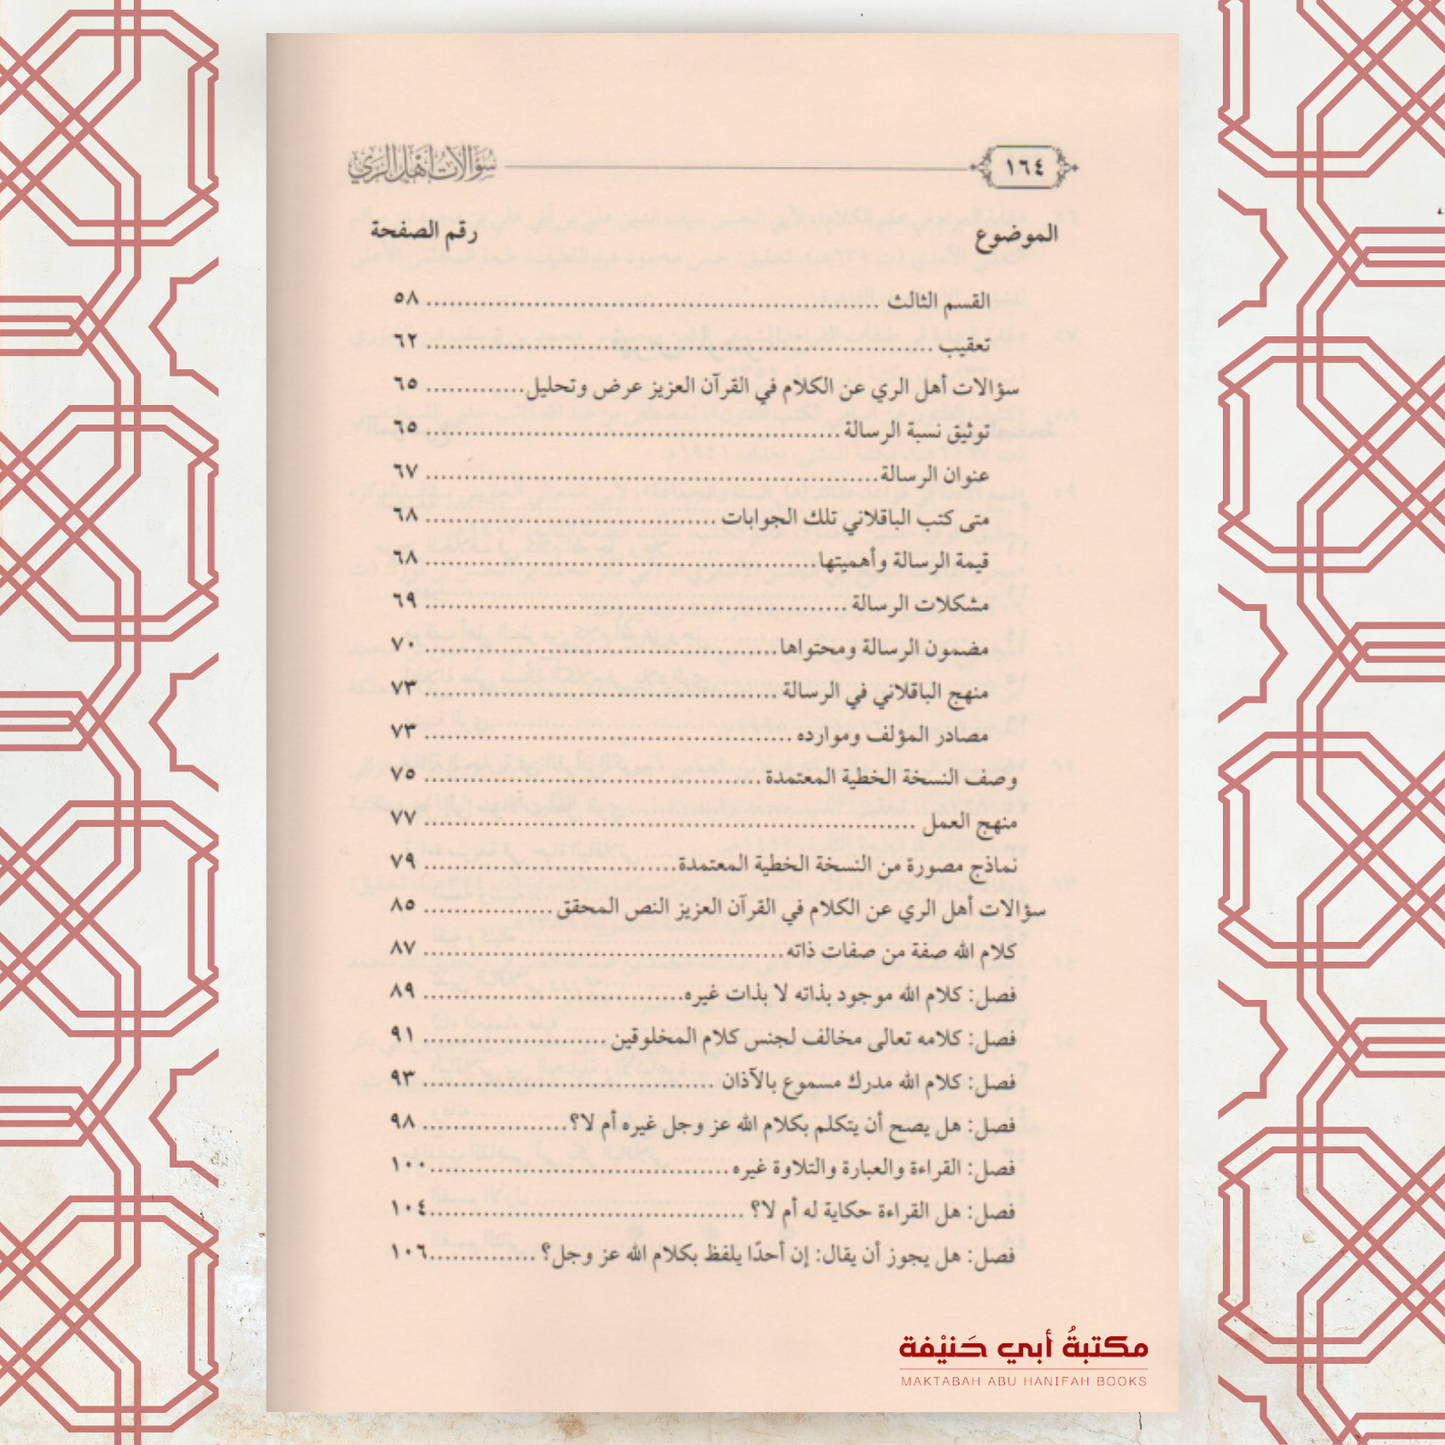 ١٦٤ سؤالات أهل الري
الموضوع رقم الصفحة
القسم الثالث ٥٨
تعقيب ٦٢
سؤالات أهل الري عن الكلام في القرآن العزيز عرض وتحليل ٦٥
توثيق نسبة الرسالة ٦٥
عنوان الرسالة ٦٧
متى كتب الباقلاني تلك الجوابات ٦٨
قيمة الرسالة وأهميتها ٦٨
مشكلات الرسالة ٦٩
مضمون الرسالة ومحتواها ٧٠
منهج الباقلاني في الرسالة ٧٣
مصادر المؤلف وموارده ٧٣
وصف النسخة الخطية المعتمدة ٧٥
منهج العمل ٧٧
نماذج مصورة من النسخة الخطية المعتمدة ٧٩
سؤالات أهل الري عن الكلام في القرآن العزيز النص المحقق ٨٥
كلام الله صفة من صفات ذاته ٨٧
فصل: كلام الله موجود بذاته لا بذات غيره ٨٩
فصل: كلامه تعالى مخالف لجنس كلام المخلوقين ٩١
فصل: كلام الله مدرك مسموع بالآذان ٩٣
فصل: هل يصح أن يتكلم بكلام الله عز وجل غيره أم لا؟ ٩٨
فصل: القراءة والعبارة والتلاوة غيره ١٠٠
فصل: هل القراءة حكاية له أم لا؟ ١٠٤
فصل: هل يجوز أن يقال: إن أحدًا يلفظ بكلام الله عز وجل؟ ١٠٦
مكتبةُ أبي حَنيْفة
MAKTABAH ABU HANIFAH BOOKS